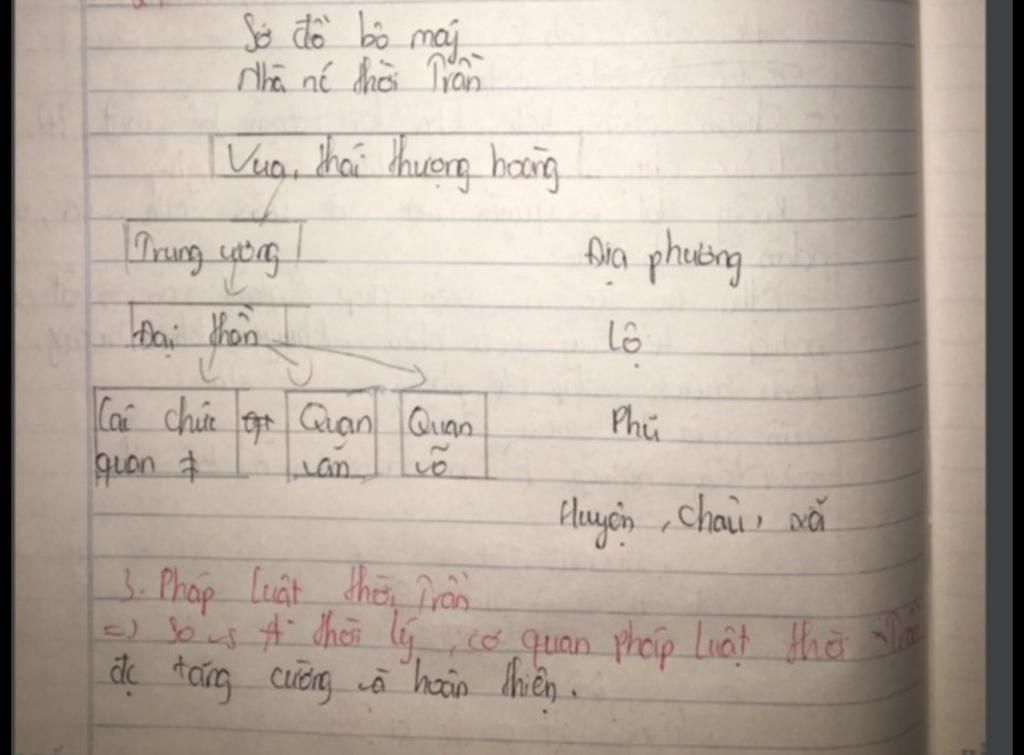 Sơ đồ bộ máy
Nhà nc thời Trần
Vua, thái thượng hoàng
Trung ương
Địa phương
Đại thần
Lộ
Các chức quan ≠
Quan văn
Quan võ
Phủ
Huyện, châu, xã
3. Pháp luật thời Trần
=) So vs thời lý, cơ quan pháp luật thời Trần
đc tăng cường và hoàn thiện.